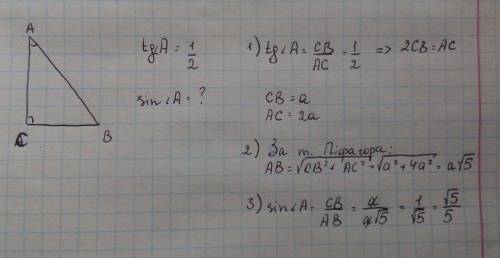 A
C
B
tg∠A = 1/2
sin∠A = ?
1) tg∠A = CB/AC = 1/2 => 2CB = AC
CB = a
AC = 2a
2) За т. Піфагора:
AB = √CB² + AC² = √a² + 4a² = a√5
3) sin∠A = CB/AB = a/a√5 = 1/√5 = √5/5